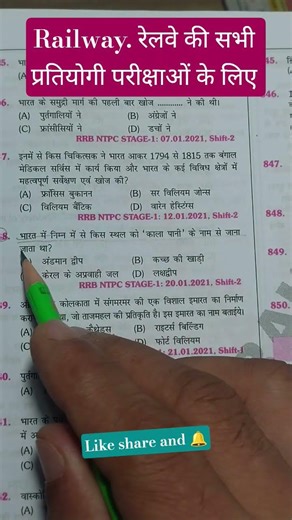 Railway. रेलवे की सभी
प्रतियोगी परीक्षाओं के लिए
6. भारत के समुद्री मार्ग की पहली बार खोज ............ ने की थी।
(A) पुर्तगालियों ने (B) अंग्रेजों ने
(C) फ्रांसीसियों ने (D) डचों ने
RRB NTPC STAGE-1: 07.01.2021, Shift-2
7. इनमें से किस चिकित्सक ने भारत आकर 1794 से 1815 तक बंगाल
मेडिकल सर्विस में कार्य किया और भारत के कई विविध क्षेत्रों में
महत्वपूर्ण सर्वेक्षण एवं खोज की?
(A) फ्रांसिस बुकानन (B) सर विलियम जोन्स
(C) विलियम बैंटिक (D) वारेन हेस्टिंग्स
RRB NTPC STAGE-1: 12.01.2021, Shift-2
8. भारत में निम्न में से किस स्थल को 'काला पानी' के नाम से जाना
जाता था?
अंडमान द्वीप (B) कच्छ की खाड़ी
केरल के अप्रवाही जल (D) लक्षद्वीप
RRB NTPC STAGE-1: 20.01.2021, Shift-1
कोलकाता में संगमरमर की एक विशाल इमारत का निर्माण
था, जो ताजमहल की प्रतिकृति है। इस इमारत का नाम बताईये।
(B) राइटर्स बिल्डिंग
(D) फोर्ट विलियम
21.01.2021, Shift-1
40. पुर्तगा
41. भारत के
में अ
(A)
(C)
42. वास्को
846.
847.
848.
849.
Like share and 🔔